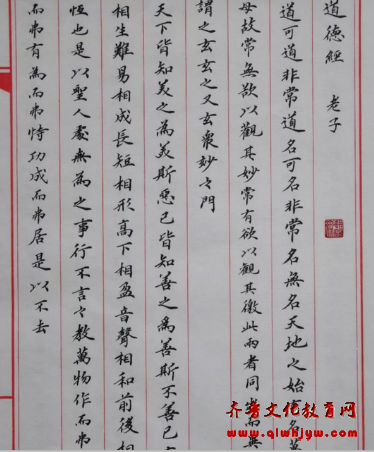 道德經 老子
道可道非常道名可名非常名無名天地之始有名萬
母故常無欲以觀其妙常有欲以觀其徼此兩者同出而異
謂之玄玄之又玄衆妙之門
天下皆知美之為美斯惡已皆知善之為善斯不善已
相生難易相成長短相形高下相盈音聲相和前後相
恆也是以聖人處無為之事行不言之教萬物作而弗
而弗有為而弗恃功成而弗居是以不去
齐鲁文化教育网
www.qlwhjyw.com